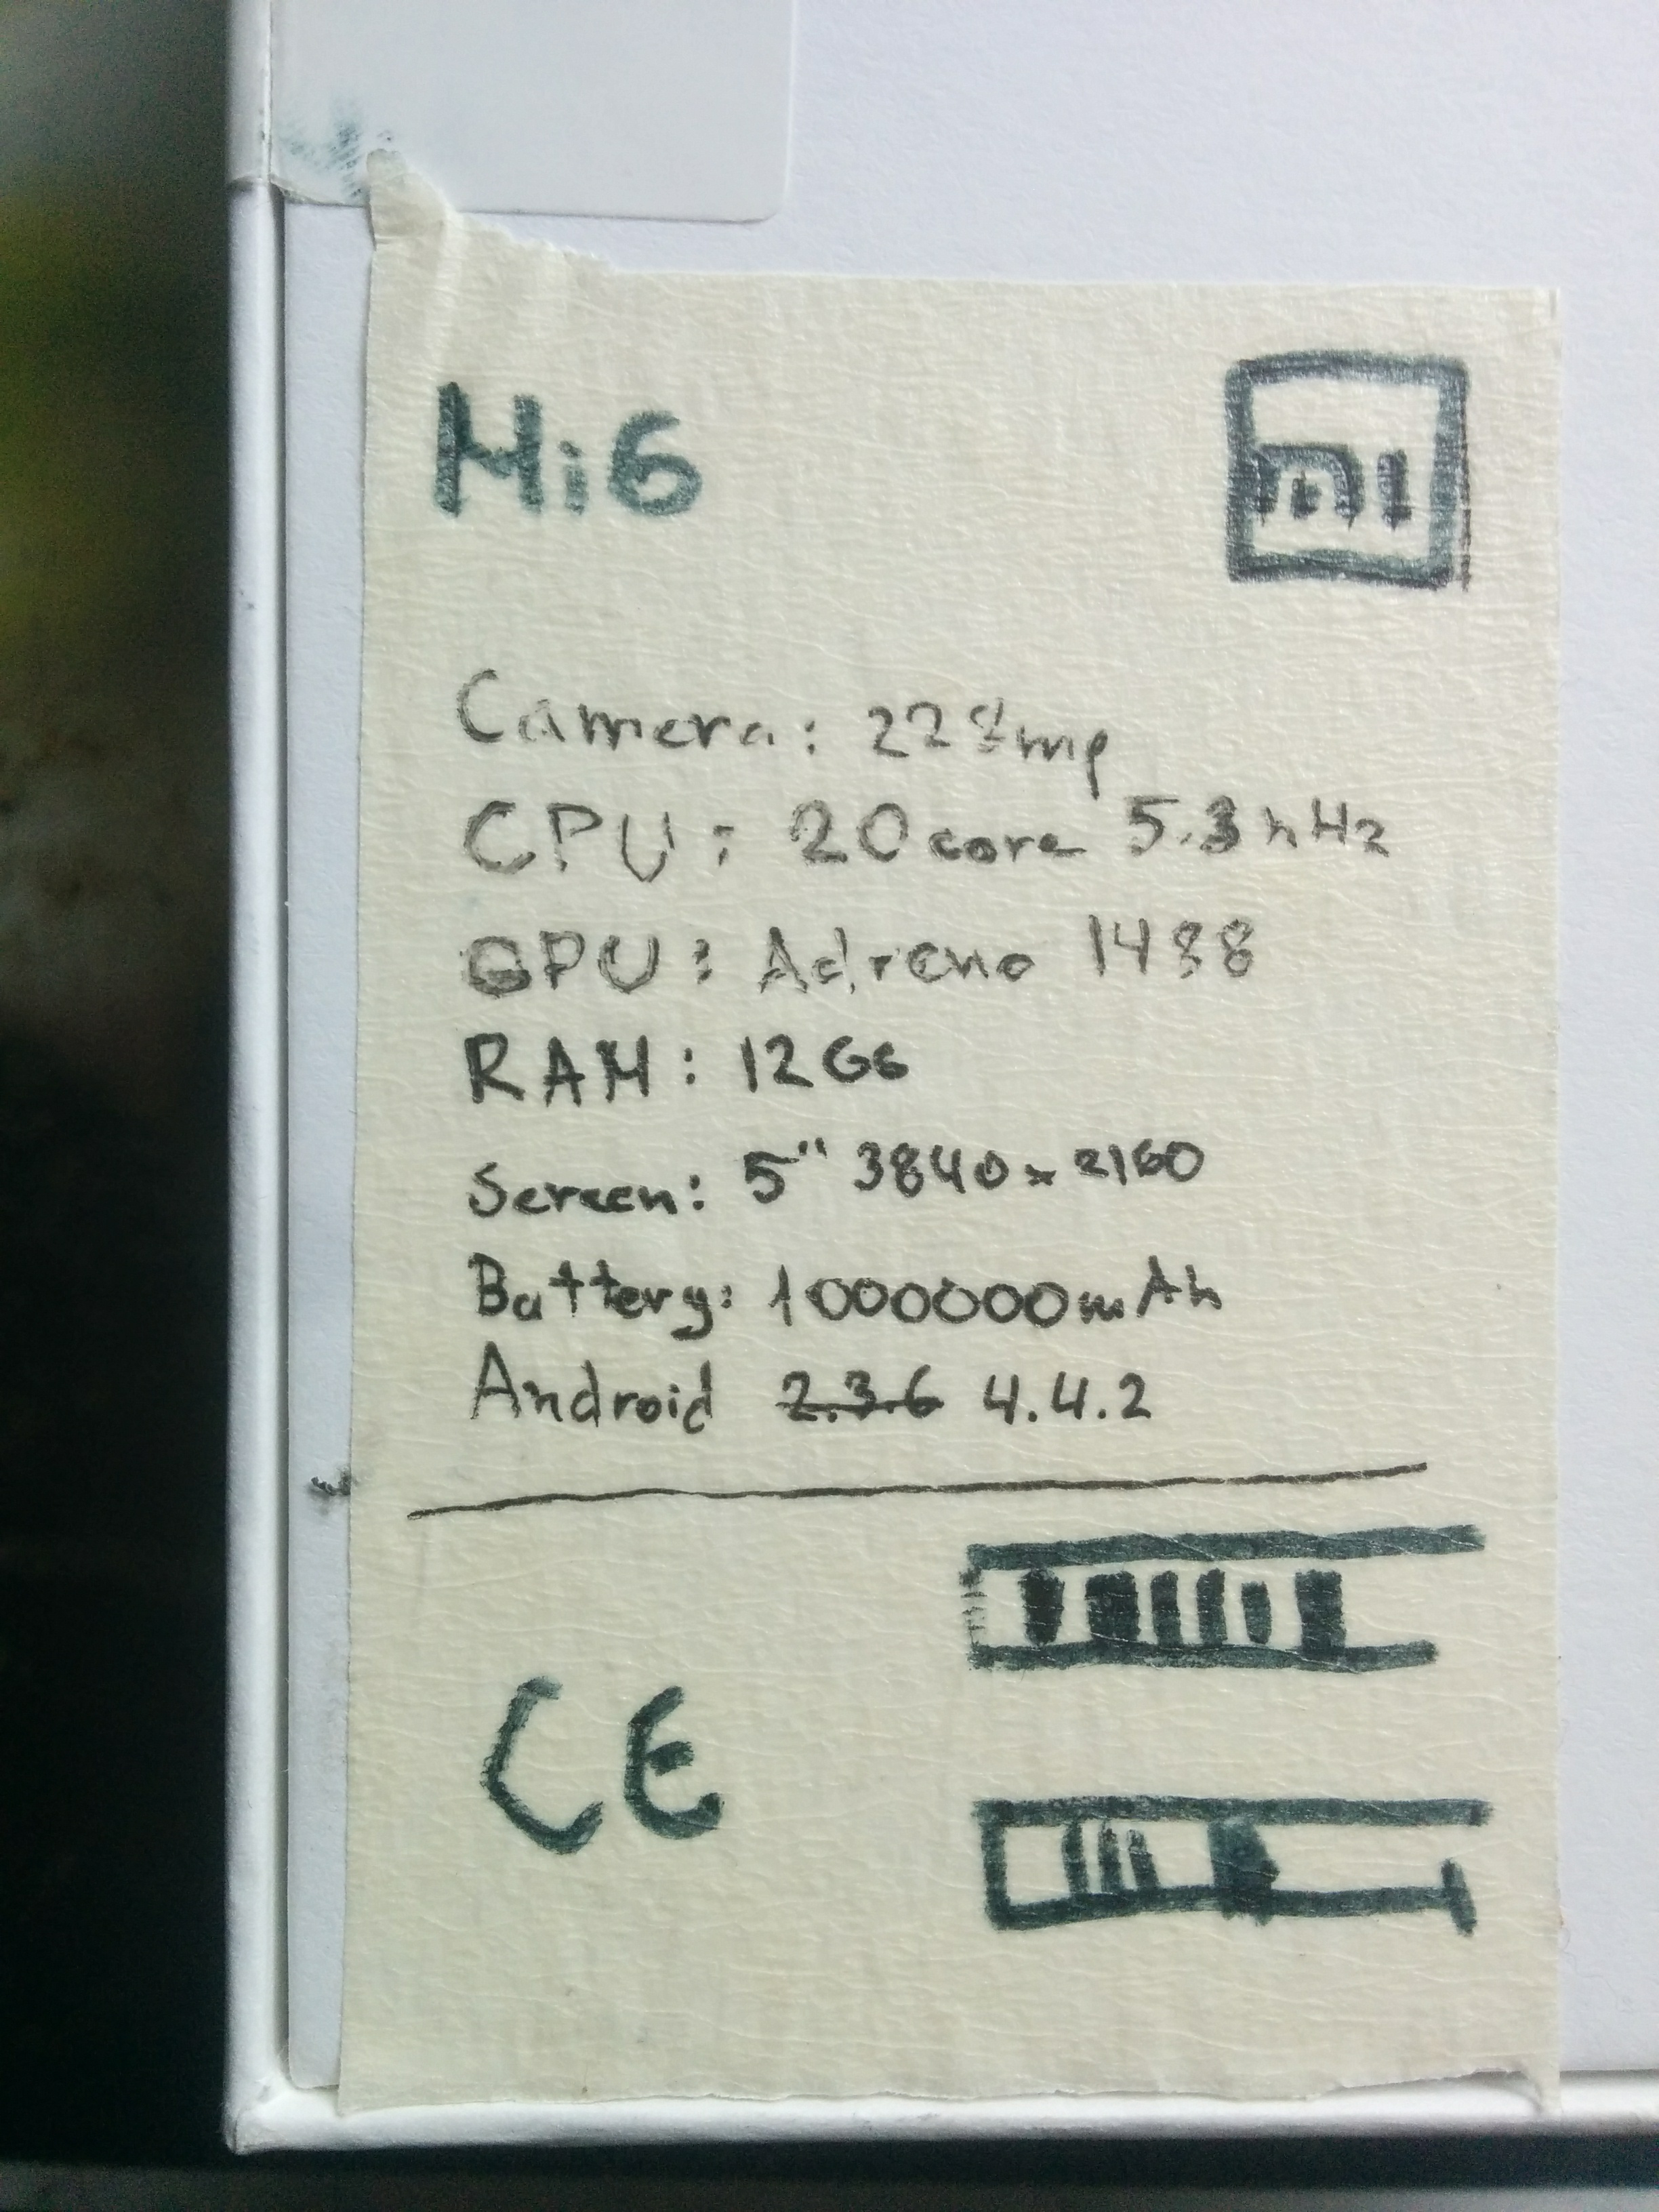 Mi6
mi
Camera: 228mp
CPU: 20core 5.3hHz
GPU: Adreno 1488
RAM: 12Gb
Screen: 5" 3840x2160
Battery: 1000000mAh
Android 2.3.6 4.4.2
CE